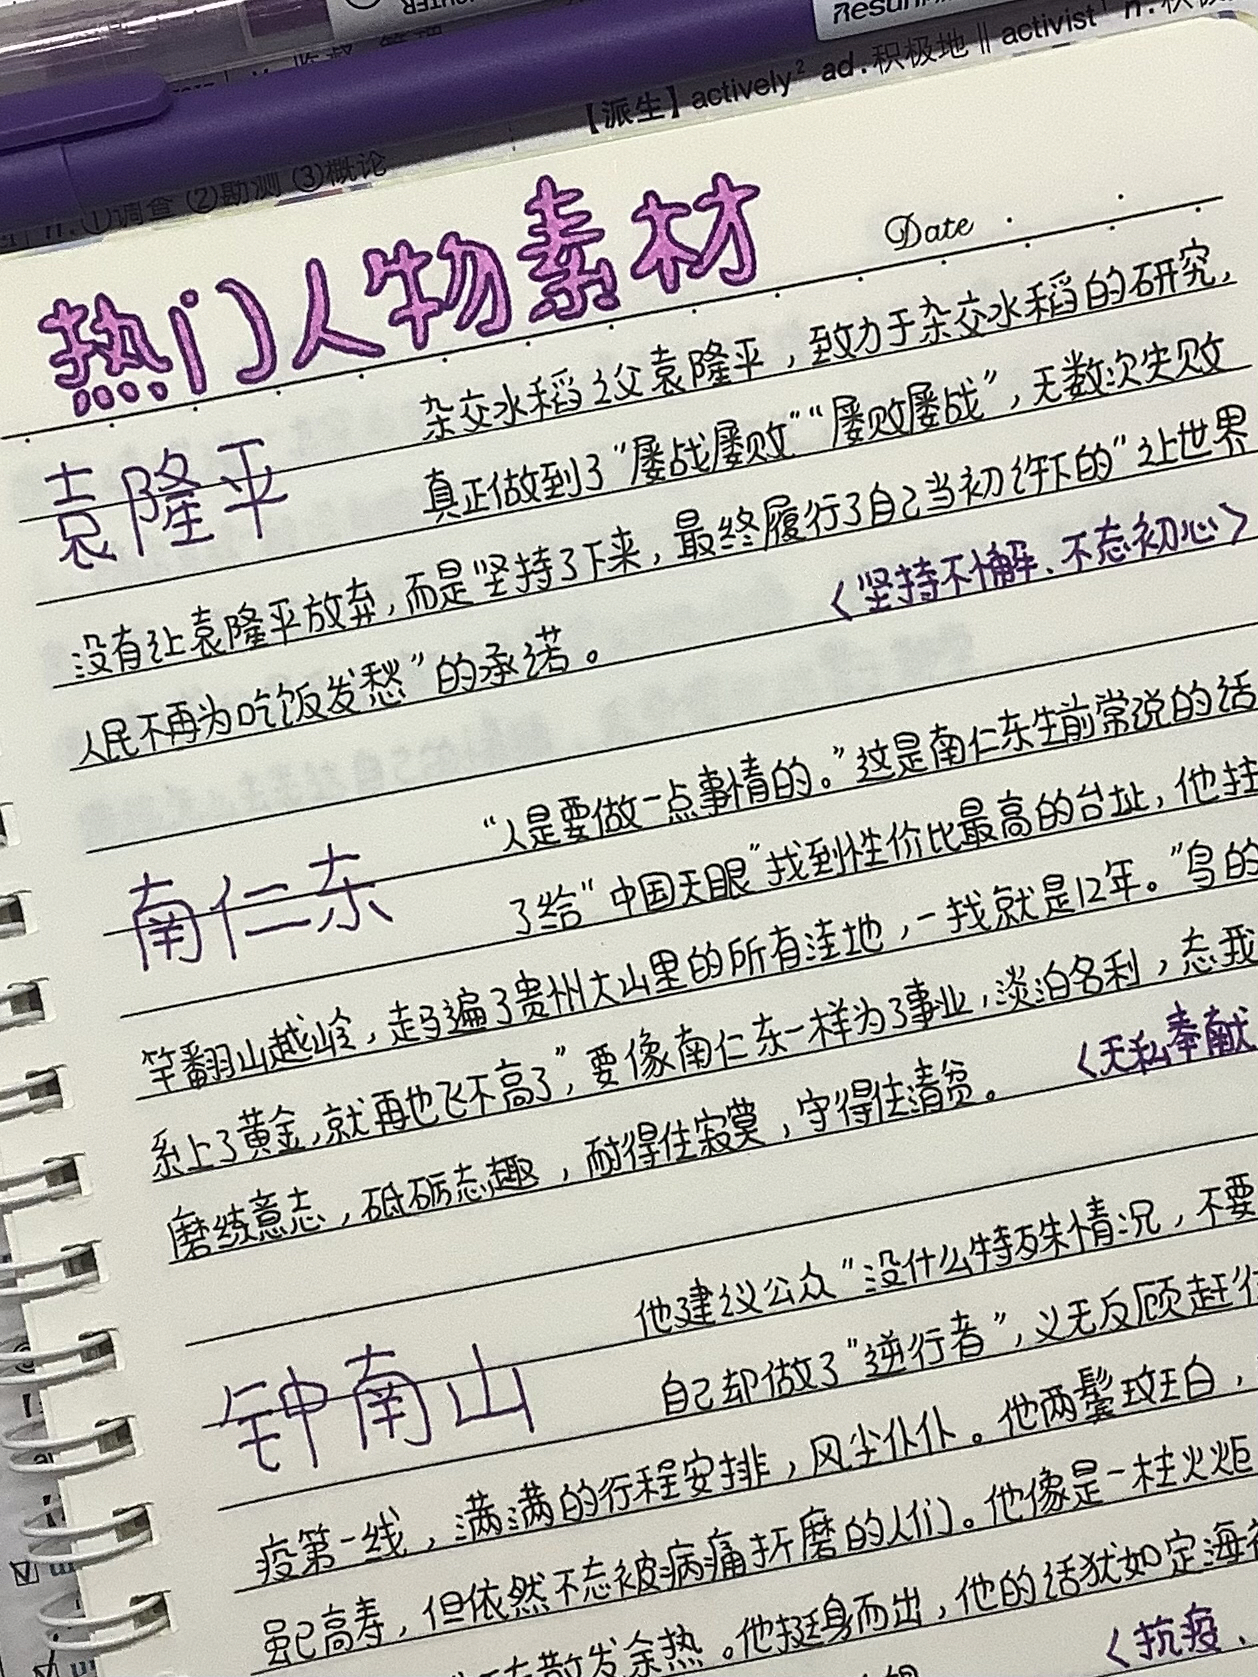 【派生】actively² ad.积极地 || activist¹ n.积极
n.①调查 ②勘测 ③概论
热门人物素材
Date
袁隆平
杂交水稻之父袁隆平，致力于杂交水稻的研究，
真正做到了“屡战屡败”“屡败屡战”，无数次失败
没有让袁隆平放弃，而是坚持了下来，最终履行了自己当初许下的“让世界
人民不再为吃饭发愁”的承诺。
〈坚持不懈、不忘初心〉
南仁东
“人是要做一点事情的。”这是南仁东生前常说的话
了给“中国天眼”找到性价比最高的台址，他拄
竿翻山越岭，走遍了贵州大山里的所有洼地，一找就是12年。“鸟的
系上了黄金，就再也飞不高了”，要像南仁东一样为了事业，淡泊名利，忘我
磨练意志，砥砺志趣，耐得住寂寞，守得住清贫。
〈无私奉献
钟南山
他建议公众“没什么特殊情况，不要
自己却做了“逆行者”，义无反顾赶往
疫第一线，满满的行程安排，风尘仆仆。他两鬓斑白，
虽已高寿，但依然不忘被病痛折磨的人们。他像是一柱火炬
散发余热。他挺身而出，他的话犹如定海
〈抗疫、